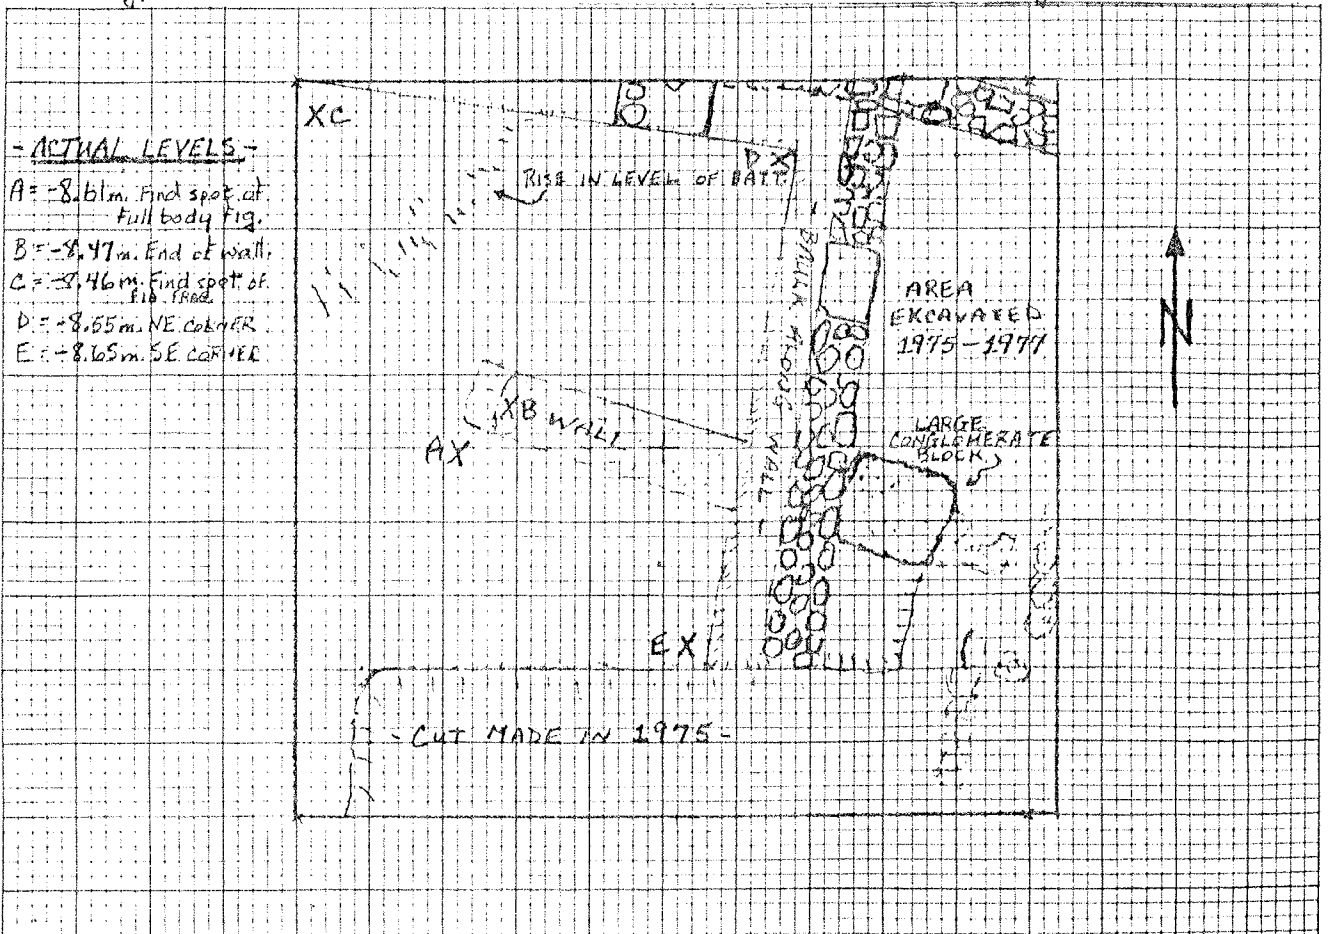 - ACTUAL LEVELS -
A = -8.61m. Find spot of
Full body fig.
B = -8.47m. End of wall.
C = -8.46m. Find spot of
FIG FRAG.
D = -8.55m. NE CORNER
E = -8.65m. SE CORNER
XC
D X
RISE IN LEVEL OF BATT.
- BAULK ALONG WALL -
AREA
EXCAVATED
1975-1977
N
XB WALL
AX
LARGE
CONGLOMERATE
BLOCK
EX
- CUT MADE IN 1975 -